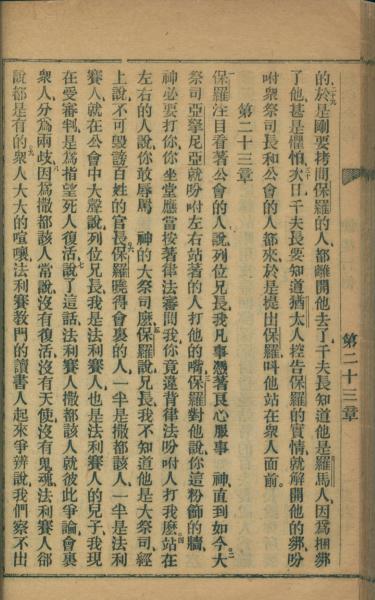 的於是剛要拷問保羅的人、都離開他去了、千夫長知道他是羅馬人、因爲捆綁
了他、甚是懼怕、次日、千夫長要知道猶太人控告保羅的實情、就解開他的綁、吩
咐衆祭司長和公會的人都來、於是提出保羅、叫他站在衆人面前。
第二十三章
保羅注目看著公會的人、說、列位兄長、我凡事憑著良心服事　神、直到如今、大
祭司亞拏尼亞、就吩咐左右站著的人打他的嘴、保羅對他說、你這粉飾的牆、
神必要打你、你坐堂應當按著律法審問我、你竟違背律法吩咐人打我麽、站在
左右的人說、你敢辱罵　神的大祭司麽、保羅說、兄長、我不知道他是大祭司、經
上說、不可毀謗百姓的官長、保羅曉得會裏的人、一半是撒都該人、一半是法利
賽人、就在公會中大聲說、列位兄長、我是法利賽人、也是法利賽人的兒子、我現
在受審判、是爲指望死人復活、說了這話、法利賽人撒都該人就彼此爭論、會裏
衆人分爲兩歧、因爲撒都該人常說沒有復活、沒有天使、沒有鬼魂、法利賽人卻
說都是有的、衆人大大的喧嚷、法利賽教門的讀書人起來爭辨說、我們察不出
第二十三章